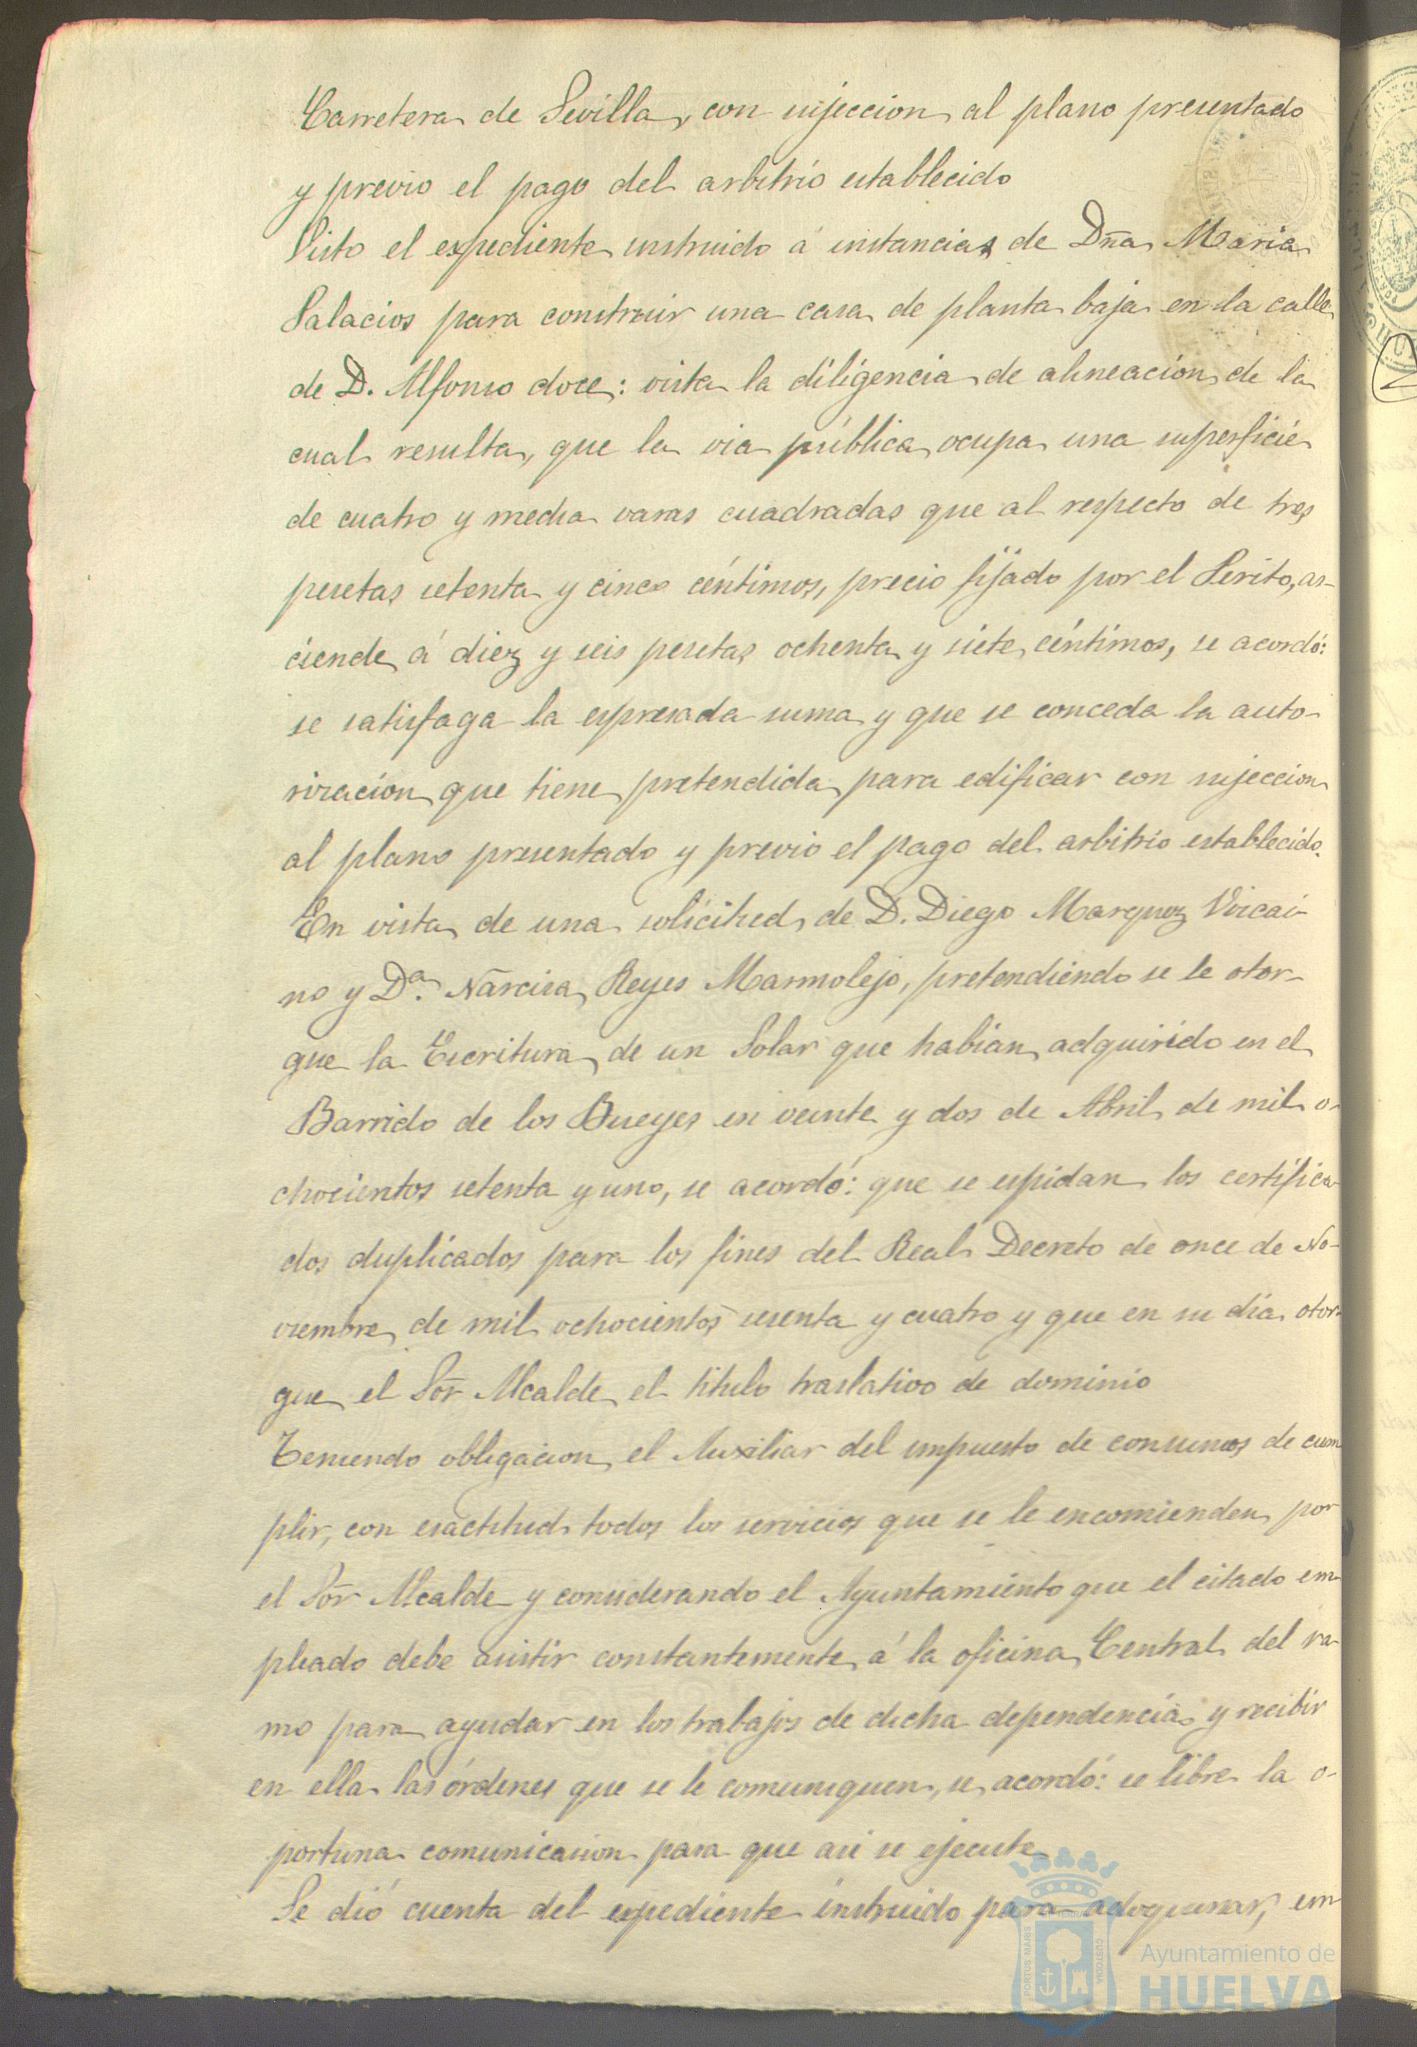 Carretera de Sevilla, con sujeccion al plano presentado
y previo el pago del arbitrio establecido
Visto el expediente instruido á instancias de Dña Maria
Palacios para construir una casa de planta baja en la calle
de D. Alfonso doce: vista la diligencia de alineación de la
cual resulta, que la via pública ocupa una superficie
de cuatro y media varas cuadradas que al respecto de tres
pesetas setenta y cinco céntimos, precio fijado por el Perito, as-
ciende á diez y seis pesetas ochenta y siete céntimos, se acordó:
se satisfaga la espresada suma y que se conceda la auto-
rización que tiene pretendida para edificar con sujeccion
al plano presentado y previo el pago del arbitrio establecido.
En vista de una solicitud de D. Diego Marquez Vizcai-
no y Dª. Narcisa Reyes Marmolejo, pretendiendo se le otor-
gue la Escritura de un Solar que habian adquirido en el
Barrido de los Bueyes en veinte y dos de Abril de mil o-
chocientos setenta y uno, se acordó: que se espidan los certifica
dos duplicados para los fines del Real Decreto de once de No-
viembre de mil ochocientos sesenta y cuatro y que en su dia otor-
gue el Sor Alcalde el titulo traslativo de dominio
Teniendo obligacion el Auxiliar del impuesto de consumos de cum
plir, con esactitud todos los servicios que se le encomienden por
el Sor Alcalde y considerando el Ayuntamiento que el citado em-
pleado debe asistir constantemente á la oficina Central del ra-
mo para ayudar en los trabajos de dicha dependencia y recibir
en ella las órdenes que se le comuniquen, se acordó: se libre la o-
portuna comunicacion para que asi se ejecute
Se dió cuenta del espediente instruido para adoquinar, em
Ayuntamiento de
HUELVA